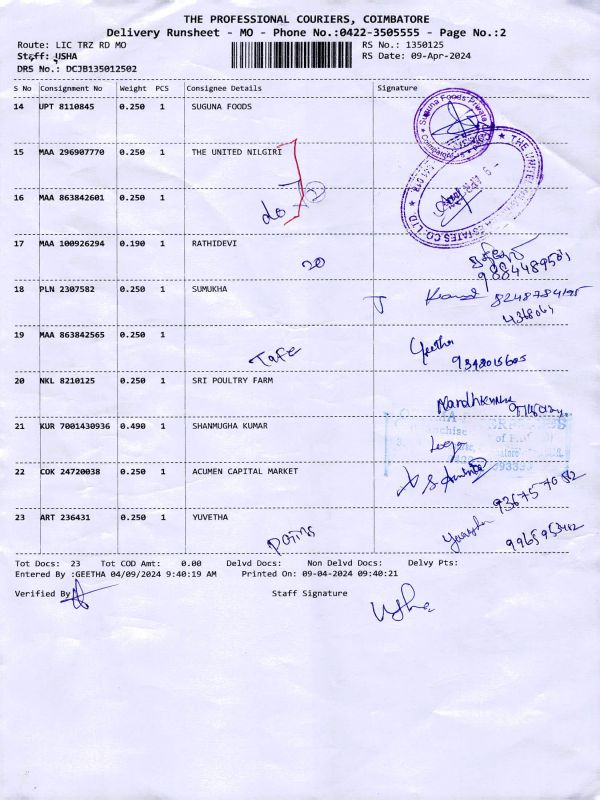 THE PROFESSIONAL COURIERS, COIMBATORE
Delivery Runsheet - MO - Phone No.:0422-3505555 - Page No.:2
Route: LIC TRZ RD MO RS No.: 1350125
Staff: USHA RS Date: 09-Apr-2024
DRS No.: DCJB135012502
S No Consignment No Weight PCS Consignee Details Signature
14 UPT 8110845 0.250 1 SUGUNA FOODS
15 MAA 296907770 0.250 1 THE UNITED NILGIRI
16 MAA 863842601 0.250 1 do
17 MAA 100926294 0.190 1 RATHIDEVI 20
9884489501
18 PLN 2307582 0.250 1 SUMUKHA
8248784195
19 MAA 863842565 0.250 1 Tafe Geetha
9342015605
20 NKL 8210125 0.250 1 SRI POULTRY FARM
21 KUR 7001430936 0.490 1 SHANMUGHA KUMAR
22 COK 24720038 0.250 1 ACUMEN CAPITAL MARKET
23 ART 236431 0.250 1 YUVETHA
Tot Docs: 23 Tot COD Amt: 0.00 Delvd Docs: Non Delvd Docs: Delvy Pts:
Entered By :GEETHA 04/09/2024 9:40:19 AM Printed On: 09-04-2024 09:40:21
Verified By Staff Signature
Usha